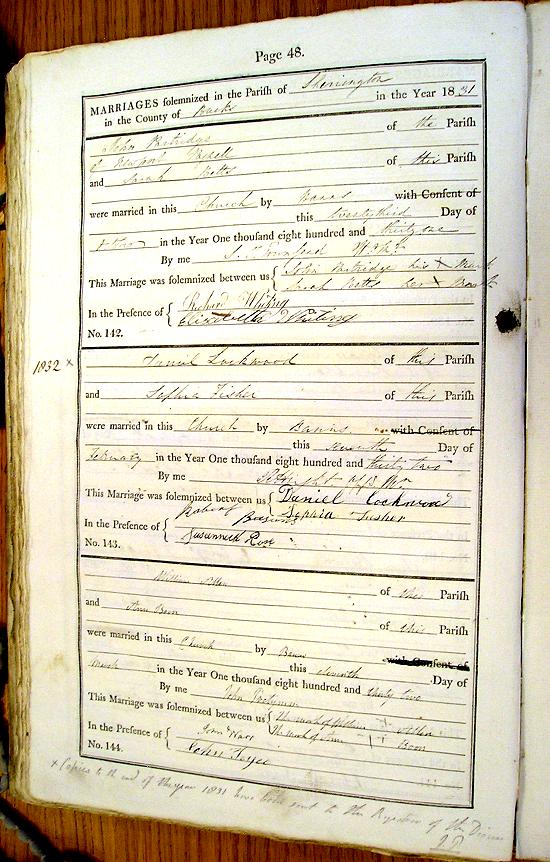 Page 48.
MARRIAGES solemnized in the Parish of Sherington
in the County of Bucks in the Year 1831
John Partridge of the Parish
of Newport Pagnell
and Sarah Betts of this Parish
were married in this Church by Banns with Consent of
this twenty third Day of
October in the Year One thousand eight hundred and thirty one
By me
This Marriage was solemnized between us John Partridge his X Mark
Sarah Betts her X Mark
In the Presence of Richard Whiting
Elizabeth Whiting
No. 142.
1832 x Daniel Lockwood of this Parish
and Sophia Fisher of this Parish
were married in this Church by Banns with Consent of
this seventh Day of
February in the Year One thousand eight hundred and thirty two
By me
This Marriage was solemnized between us Daniel Lockwood
Sophia Fisher
In the Presence of Robert
Susannah Rose
No. 143.
William Allen of this Parish
and Ann Boon of this Parish
were married in this Church by Banns with Consent of
this eleventh Day of
March in the Year One thousand eight hundred and thirty two
By me John
This Marriage was solemnized between us The mark of William X Allen
The mark of Ann X Boon
In the Presence of John
John Joyce
No. 144.
x Copies to the end of the year 1831 have been sent to the Register of the